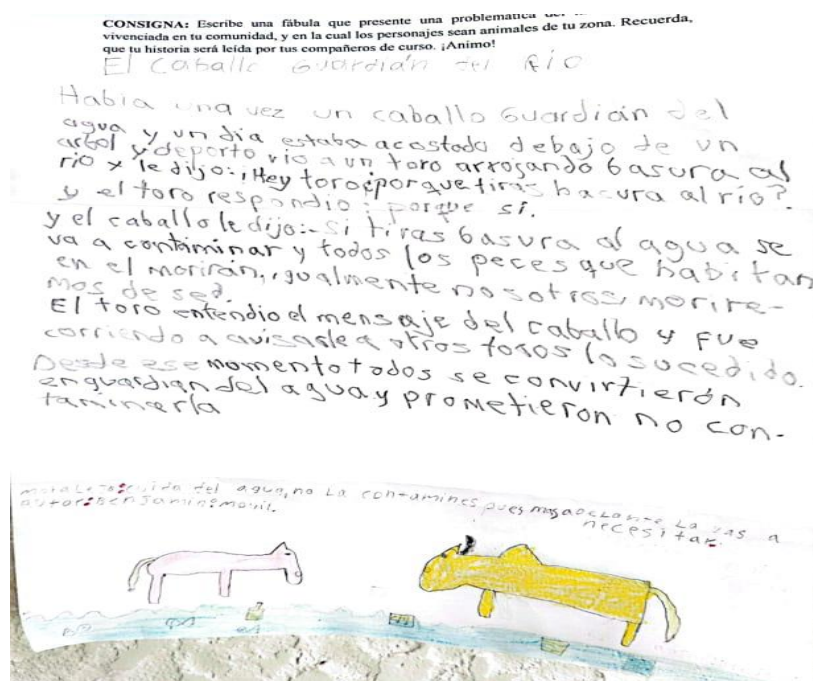 CONSIGNA: Escribe una fábula que presente una problemática
vivenciada en tu comunidad, y en la cual los personajes sean animales de tu zona. Recuerda,
que tu historia será leída por tus compañeros de curso. ¡Animo!
El Caballo Guardián del Rio
Habia una vez un caballo Guardián del
agua y un dia estaba acostado debajo de un
arbol y deporto vio a un toro arrojando basura al
rio y le dijo: ¡Hey toro¿porque tiras basura al río?
y el toro respondio: porque si.
y el caballo le dijo:- si tiras basura al agua se
va a contiminar y todos los peces que habitan
en el moriran, igualmente nosotros morire-
mos de sed.
El toro entendio el mensaje del caballo y fue
corriendo a avisarle a otros toros lo sucedido.
Desde ese momento todos se convirtierón
en guardian del agua y prometieron no con-
taminarla
del agua, no la contamines pues mas adelante la vas a
necesitar.
autor: Benjamin